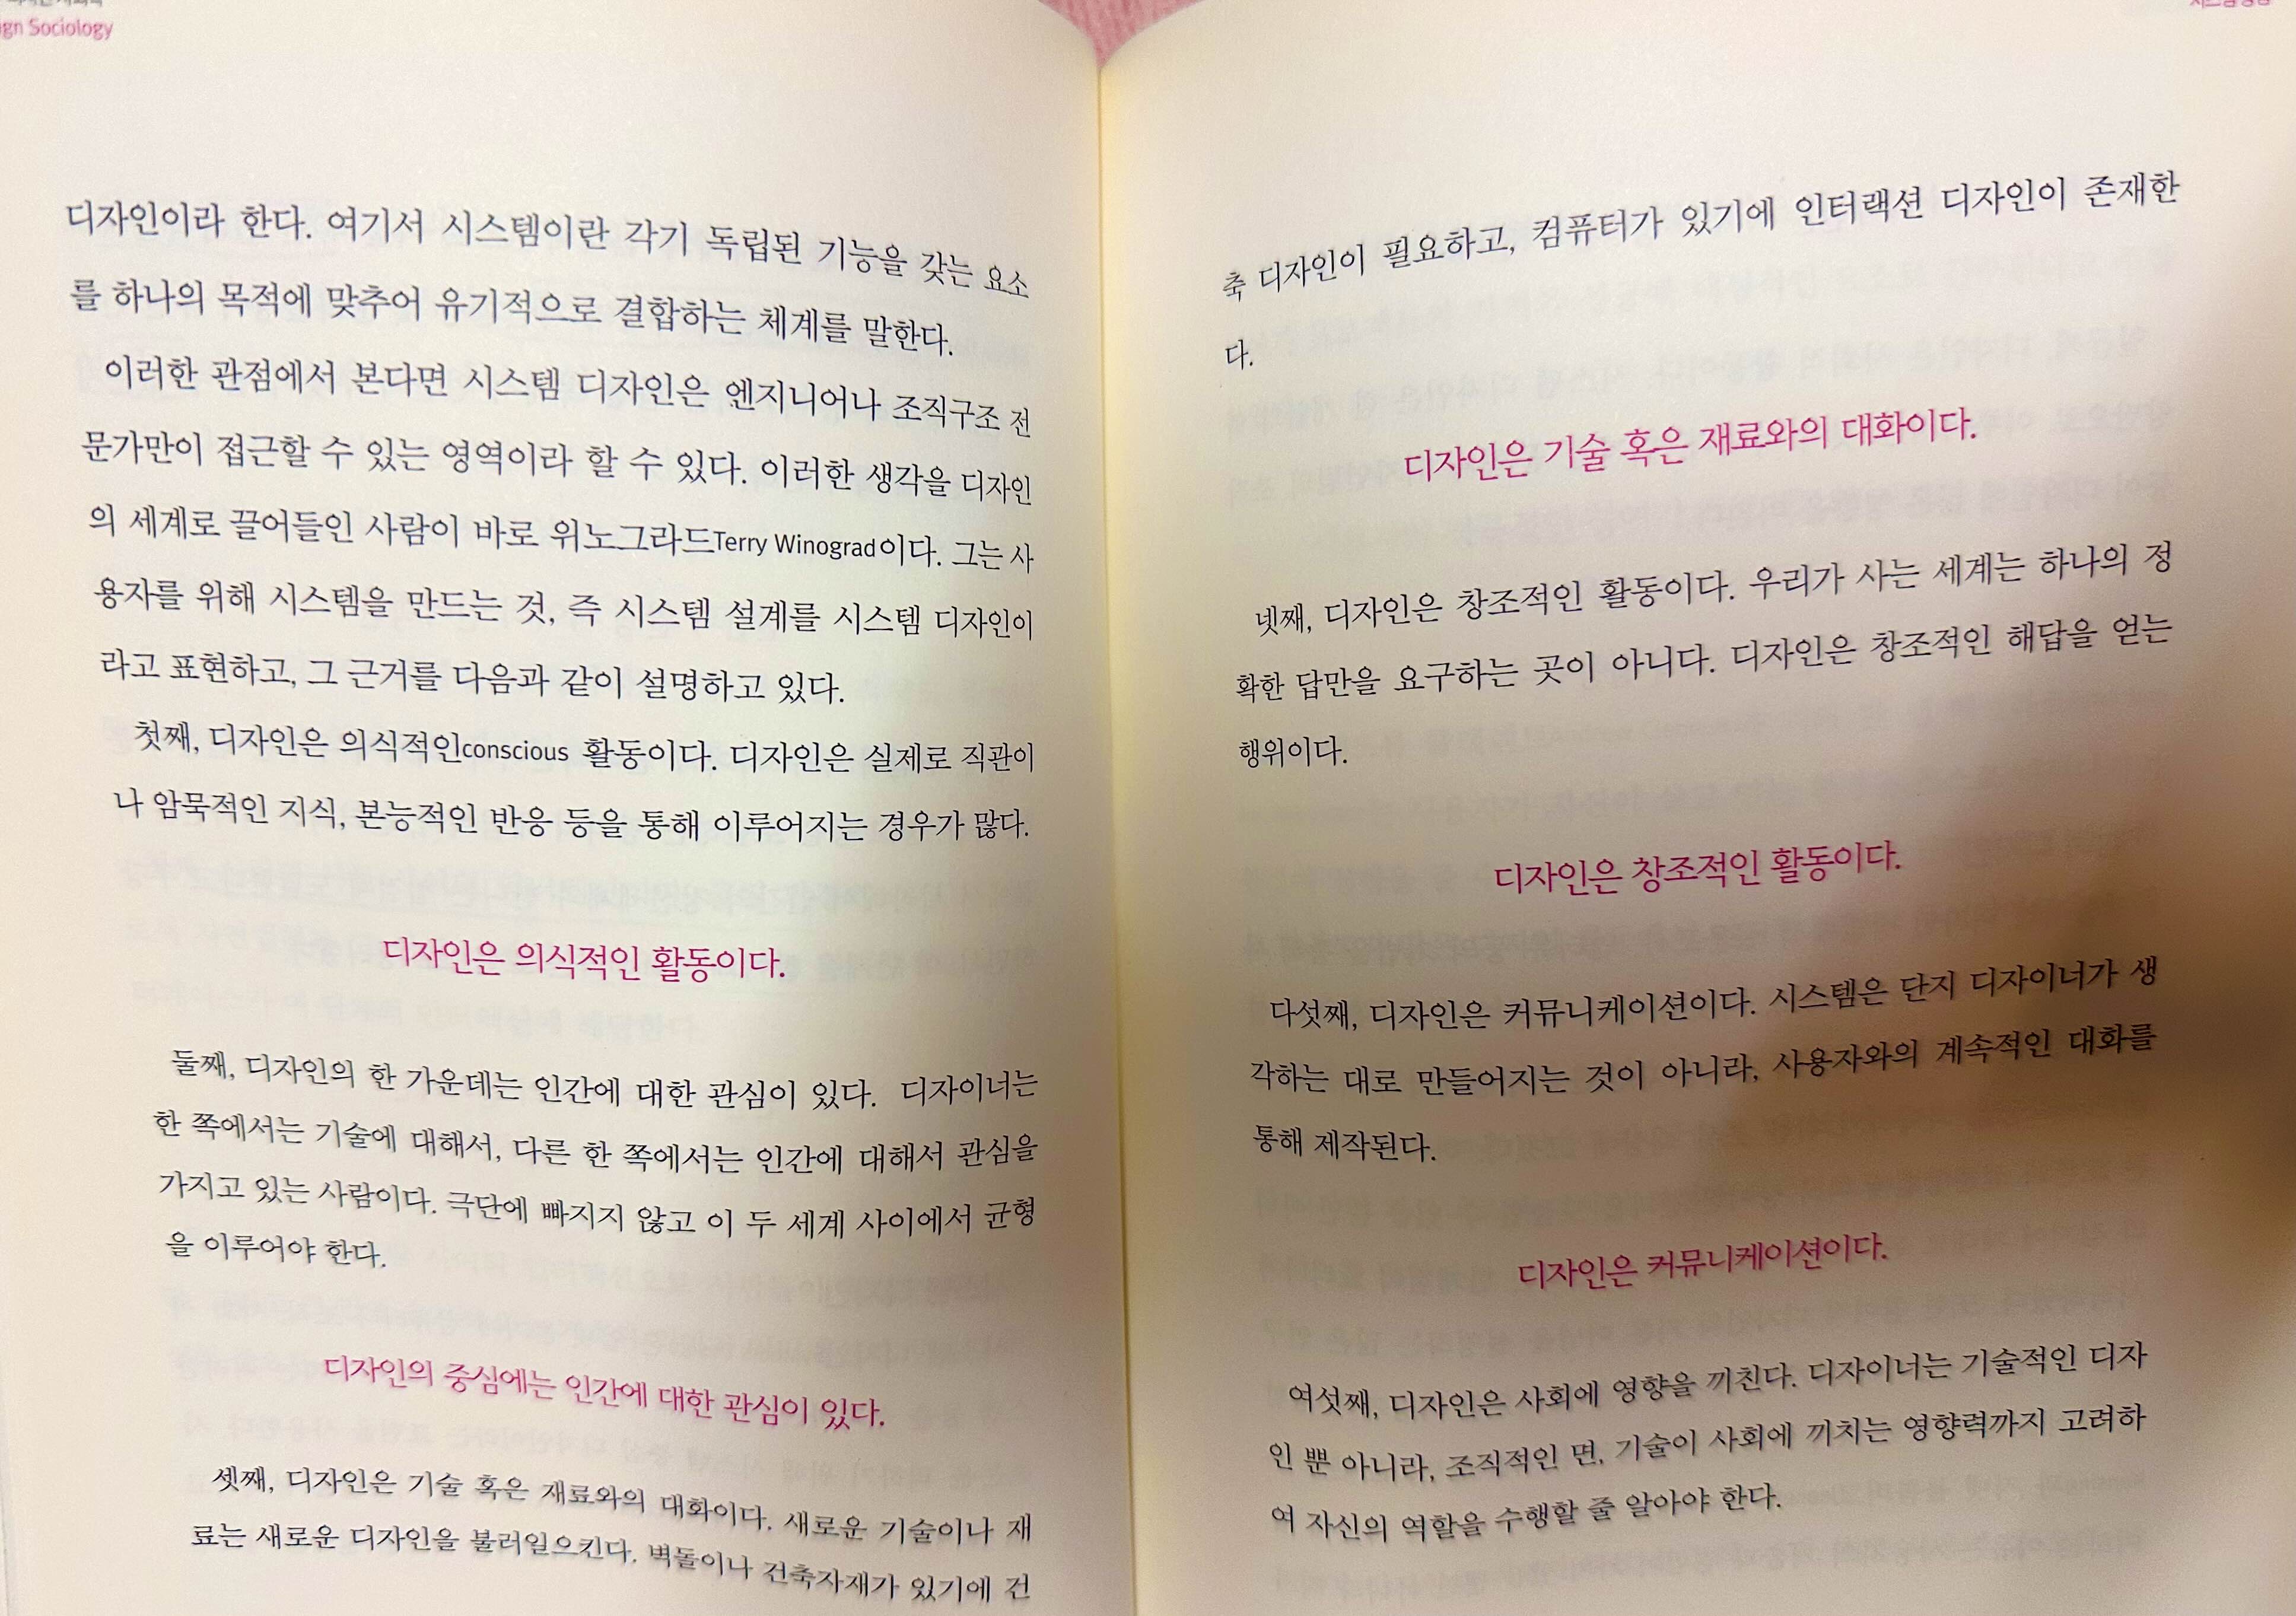 Sociology
디자인이라 한다. 여기서 시스템이란 각기 독립된 기능을 갖는 요소
를 하나의 목적에 맞추어 유기적으로 결합하는 체계를 말한다.
이러한 관점에서 본다면 시스템 디자인은 엔지니어나 조직구조 전
문가만이 접근할 수 있는 영역이라 할 수 있다. 이러한 생각을 디자인
의 세계로 끌어들인 사람이 바로 위노그라드Terry Winograd이다. 그는 사
용자를 위해 시스템을 만드는 것, 즉 시스템 설계를 시스템 디자인이
라고 표현하고, 그 근거를 다음과 같이 설명하고 있다.
첫째, 디자인은 의식적인conscious 활동이다. 디자인은 실제로 직관이
나 암묵적인 지식, 본능적인 반응 등을 통해 이루어지는 경우가 많다.
디자인은 의식적인 활동이다.
둘째, 디자인의 한 가운데는 인간에 대한 관심이 있다. 디자이너는
한 쪽에서는 기술에 대해서, 다른 한 쪽에서는 인간에 대해서 관심을
가지고 있는 사람이다. 극단에 빠지지 않고 이 두 세계 사이에서 균형
을 이루어야 한다.
디자인의 중심에는 인간에 대한 관심이 있다.
셋째, 디자인은 기술 혹은 재료와의 대화이다. 새로운 기술이나 재
료는 새로운 디자인을 불러일으킨다. 벽돌이나 건축자재가 있기에 건
축 디자인이 필요하고, 컴퓨터가 있기에 인터랙션 디자인이 존재한
다.
디자인은 기술 혹은 재료와의 대화이다.
넷째, 디자인은 창조적인 활동이다. 우리가 사는 세계는 하나의 정
확한 답만을 요구하는 곳이 아니다. 디자인은 창조적인 해답을 얻는
행위이다.
디자인은 창조적인 활동이다.
다섯째, 디자인은 커뮤니케이션이다. 시스템은 단지 디자이너가 생
각하는 대로 만들어지는 것이 아니라, 사용자와의 계속적인 대화를
통해 제작된다.
디자인은 커뮤니케이션이다.
여섯째, 디자인은 사회에 영향을 끼친다. 디자이너는 기술적인 디자
인 뿐 아니라, 조직적인 면, 기술이 사회에 끼치는 영향력까지 고려하
여 자신의 역할을 수행할 줄 알아야 한다.